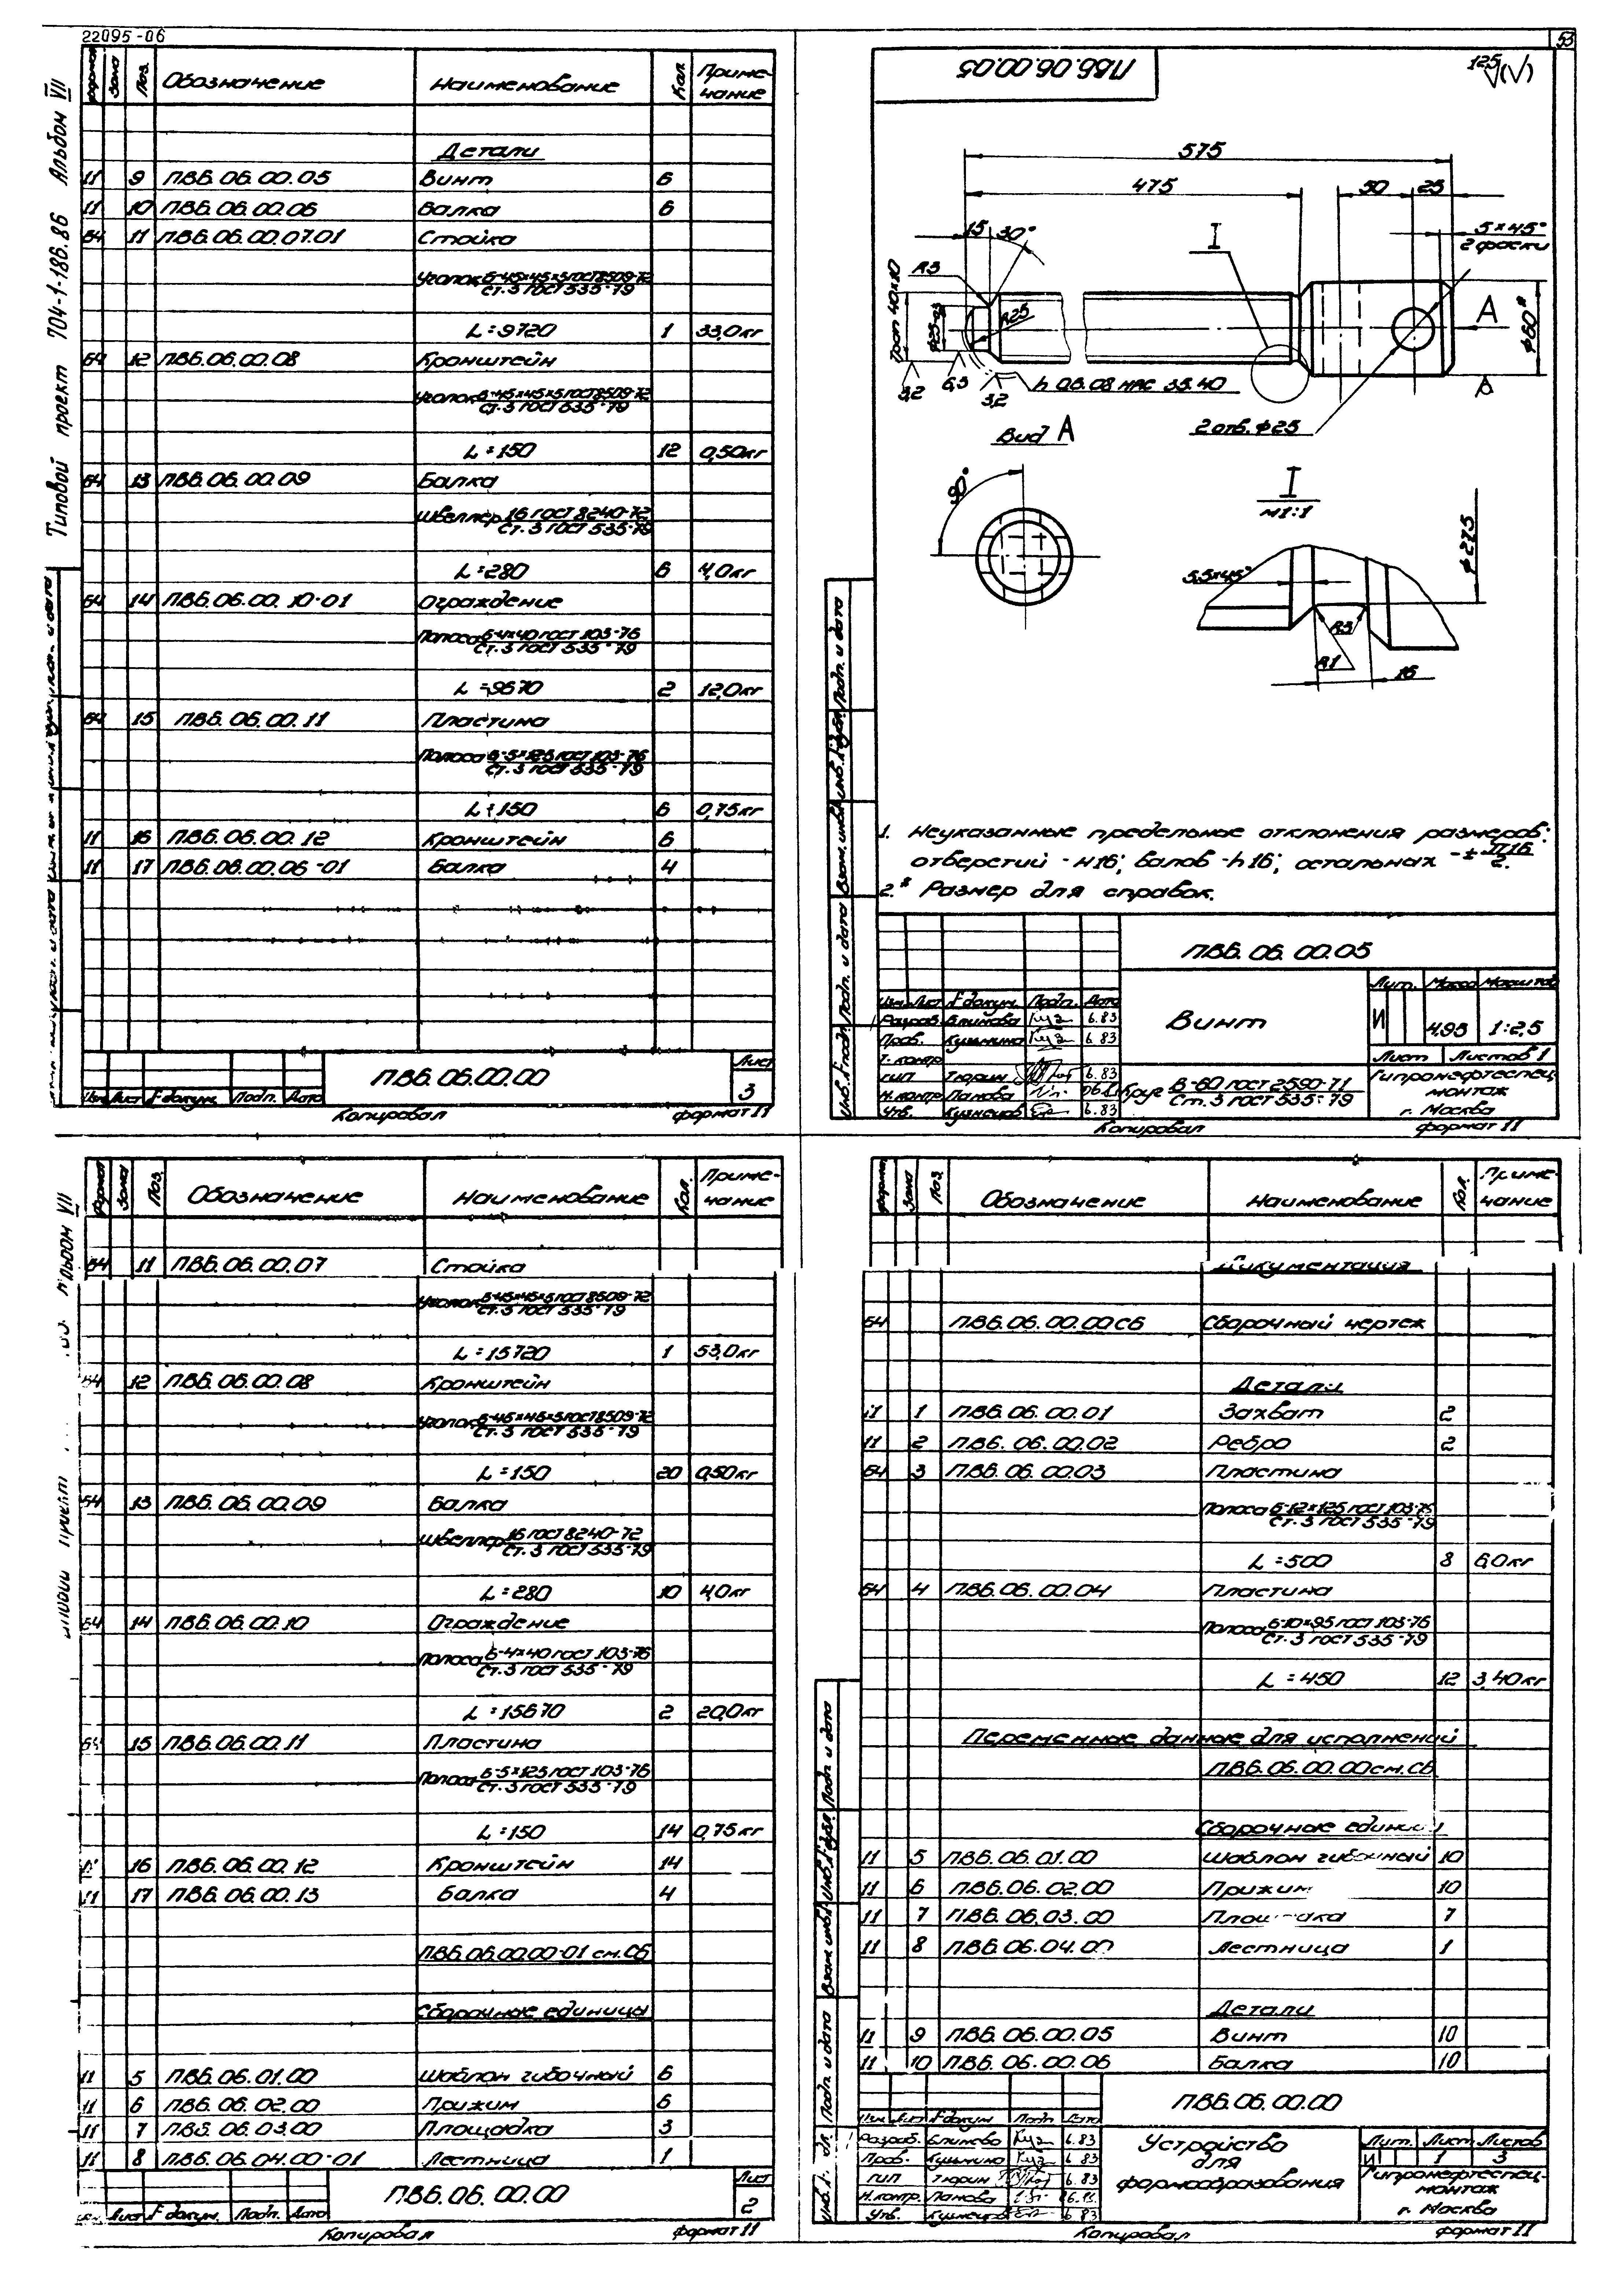 22095-06
53
Типовой проект 704-1-186.86 Альбом VII
Формат Зона Поз. Обозначение Наименование Кол. Приме-
чание
Детали
11 9 ПВБ.06.00.05 Винт 6
11 10 ПВБ.06.00.06 Балка 6
Б4 11 ПВБ.06.00.07.01 Стойка
Уголок Б-45×45×5 ГОСТ 8509-72
Ст.3 ГОСТ 535-79
L=9720 1 33,0кг
Б4 12 ПВБ.06.00.08 Кронштейн
Уголок Б-45×45×5 ГОСТ 8509-72
Ст.3 ГОСТ 535-79
L=150 12 0,50кг
Б4 13 ПВБ.06.00.09 Балка
Швеллер 16 ГОСТ 8240-72
Ст.3 ГОСТ 535-79
L=280 6 4,0кг
Б4 14 ПВБ.06.00.10-01 Ограждение
Полоса Б-4×40 ГОСТ 103-76
Ст.3 ГОСТ 535-79
L=9670 2 12,0кг
Б4 15 ПВБ.06.00.11 Пластина
Полоса Б-5×125 ГОСТ 103-76
Ст.3 ГОСТ 535-79
L=150 6 0,75кг
11 16 ПВБ.06.00.12 Кронштейн 6
11 17 ПВБ.06.00.06-01 Балка 4
Изм Лист № докум. Подп. Дата
ПВБ.06.00.00
Лист
3
Копировал Формат 11
ПВБ.06.00.05
125 √(√)
575
475 50 25
15 30° I 5×45°
2 фаски
R3
Трап 40×10
ф25
R25
А
ф60*
3,2 6,3 3,2 h 0,6..0,8 HRC 35..40
Вид А
2 отв. ф25
90°
I
М1:1
ф27,5
5,5×45°
R3
R1
16
1. Неуказанные предельные отклонения размеров:
отверстий -H16; валов -h16; остальных -± IT16
2.
2.* Размер для справок.
Инв.№подл. Подп. и дата Взам.инв.№ Инв.№дубл. Подп. и дата
ПВБ.06.00.05
Изм Лист № докум. Подп. Дата
Разраб. Блинова 6.83
Пров. Кузьмина 6.83
Т. контр
ГИП Тюрин 6.83
Н.контр. Панова
Утв. Кузнецов 6.83
Винт
Лит. Масса Масштаб
И 4,95 1:2,5
Лист Листов 1
Круг В-60 ГОСТ 2590-71
Ст.3 ГОСТ 535-79
Гипронефтеспец-
монтаж
г. Москва
Копировал Формат 11
Формат Зона Поз. Обозначение Наименование Кол. Приме-
чание
Б4 11 ПВБ.06.00.07 Стойка
Уголок Б-45×45×5 ГОСТ 8509-72
Ст.3 ГОСТ 535-79
L=15720 1 53,0кг
Б4 12 ПВБ.06.00.08 Кронштейн
Уголок Б-45×45×5 ГОСТ 8509-72
Ст.3 ГОСТ 535-79
L=150 20 0,50кг
Б4 13 ПВБ.06.00.09 Балка
Швеллер 16 ГОСТ 8240-72
Ст.3 ГОСТ 535-79
L=280 10 4,0кг
Б4 14 ПВБ.06.00.10 Ограждение
Полоса Б-4×40 ГОСТ 103-76
Ст.3 ГОСТ 535-79
L=15670 2 20,0кг
Б4 15 ПВБ.06.00.11 Пластина
Полоса Б-5×125 ГОСТ 103-76
Ст.3 ГОСТ 535-79
L=150 14 0,75кг
11 16 ПВБ.06.00.12 Кронштейн 14
11 17 ПВБ.06.00.13 Балка 4
ПВБ.06.00.00-01 см.СБ
Сборочные единицы
11 5 ПВБ.06.01.00 Шаблон гибочный 6
11 6 ПВБ.06.02.00 Прижим 6
11 7 ПВБ.06.03.00 Площадка 3
11 8 ПВБ.06.04.00-01 Лестница 1
Лист № докум. Подп. Дата
ПВБ.06.00.00
Лист
2
Копировал Формат 11
Формат Зона Поз. Обозначение Наименование Кол. Приме-
чание
Документация
Б4 ПВБ.06.00.00СБ Сборочный чертеж
Детали
11 1 ПВБ.06.00.01 Захват 2
11 2 ПВБ.06.00.02 Ребро 2
Б4 3 ПВБ.06.00.03 Пластина
Полоса Б-12×125 ГОСТ 103-76
Ст.3 ГОСТ 535-79
L=500 8 6,0кг
Б4 4 ПВБ.06.00.04 Пластина
Полоса Б-10×95 ГОСТ 103-76
Ст.3 ГОСТ 535-79
L=450 12 3,40кг
Переменные данные для исполнений
ПВБ.06.00.00 см.СБ
Сборочные единицы
11 5 ПВБ.06.01.00 Шаблон гибочный 10
11 6 ПВБ.06.02.00 Прижим 10
11 7 ПВБ.06.03.00 Площадка 7
11 8 ПВБ.06.04.00 Лестница 1
Детали
11 9 ПВБ.06.00.05 Винт 10
11 10 ПВБ.06.00.06 Балка 10
Подп. и дата Взам.инв.№ Инв.№дубл. Подп. и дата
ПВБ.06.00.00
Изм Лист № докум Подп. Дата
Разраб. Блинова 6.83
Пров. Кузьмина 6.83
ГИП Тюрин 6.83
Н.контр. Панова
Утв. Кузнецов 6.83
Устройство
для
формообразования
Лит. Лист Листов
И 1 3
Гипронефтеспец-
монтаж
г. Москва
Копировал Формат 11